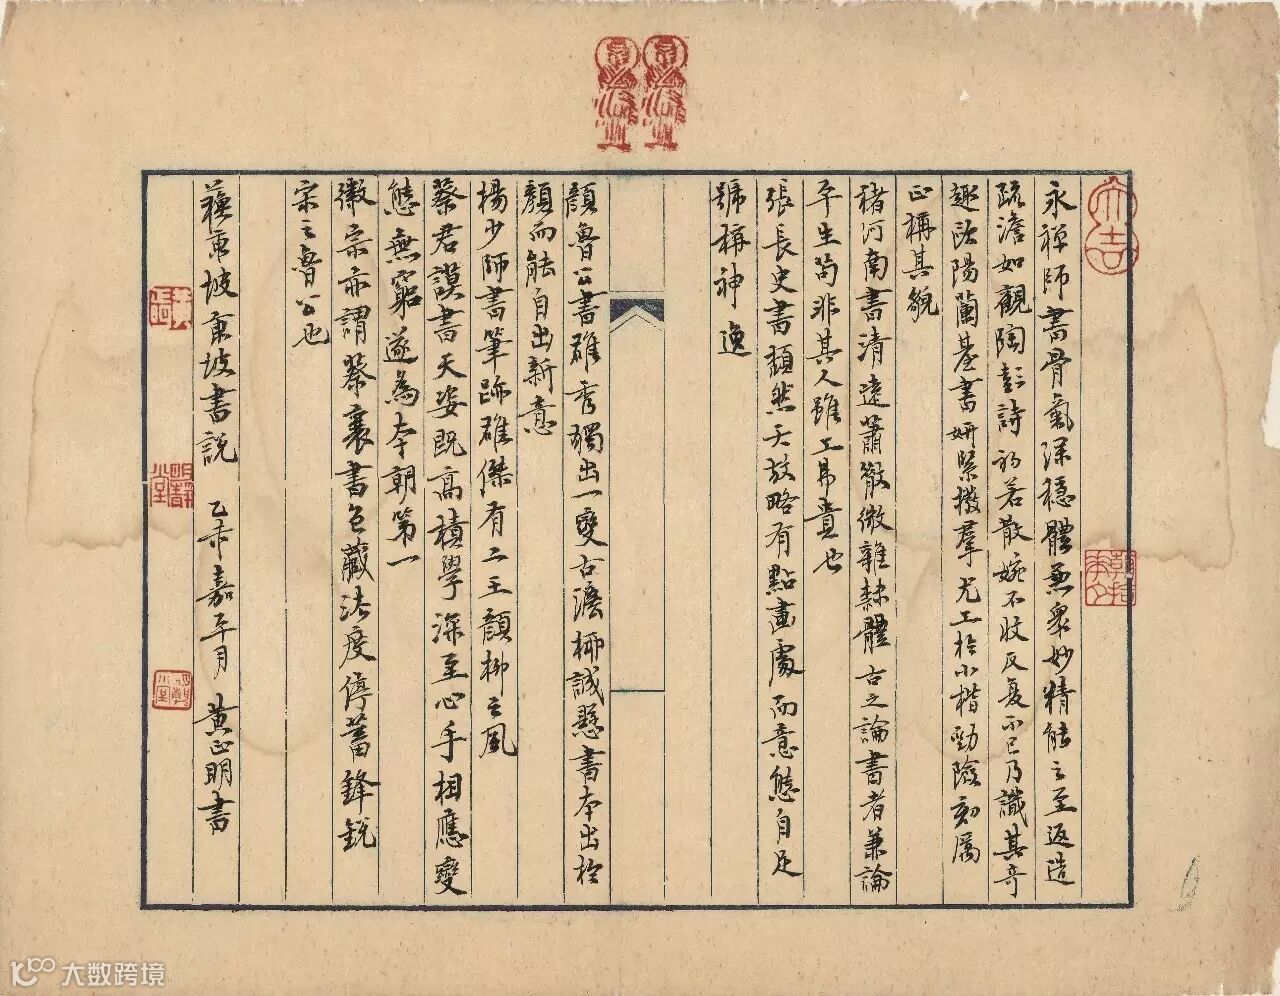 永禪師書骨氣深穩體兼衆妙精能之至返造
疏澹如觀陶彭詩初若散婉不收反复不已乃識其奇
趣歐陽蘭基書妍緊拔羣尤工於小楷勁險刻厲
正稱其貌
褚河南書清遠蕭散微雜隸體古之論書者兼論
平生苟非其人雖工弗貴也
張長史書頹然天放略有點畫處而意態自足
號稱神逸
顏魯公書雄秀獨出一變古法柳誠懸書本出於
顏而能自出新意
楊少師書筆跡雄傑有二王顏柳之風
蔡君謨書天姿既高積學深至心手相應變
態無窮遂為本朝第一
徽宗亦謂蔡襄書包藏法度停蓄鋒銳
宗之魯公也
蘇東坡東坡書說 乙未嘉平月 黃正明書
大吉
大数跨境